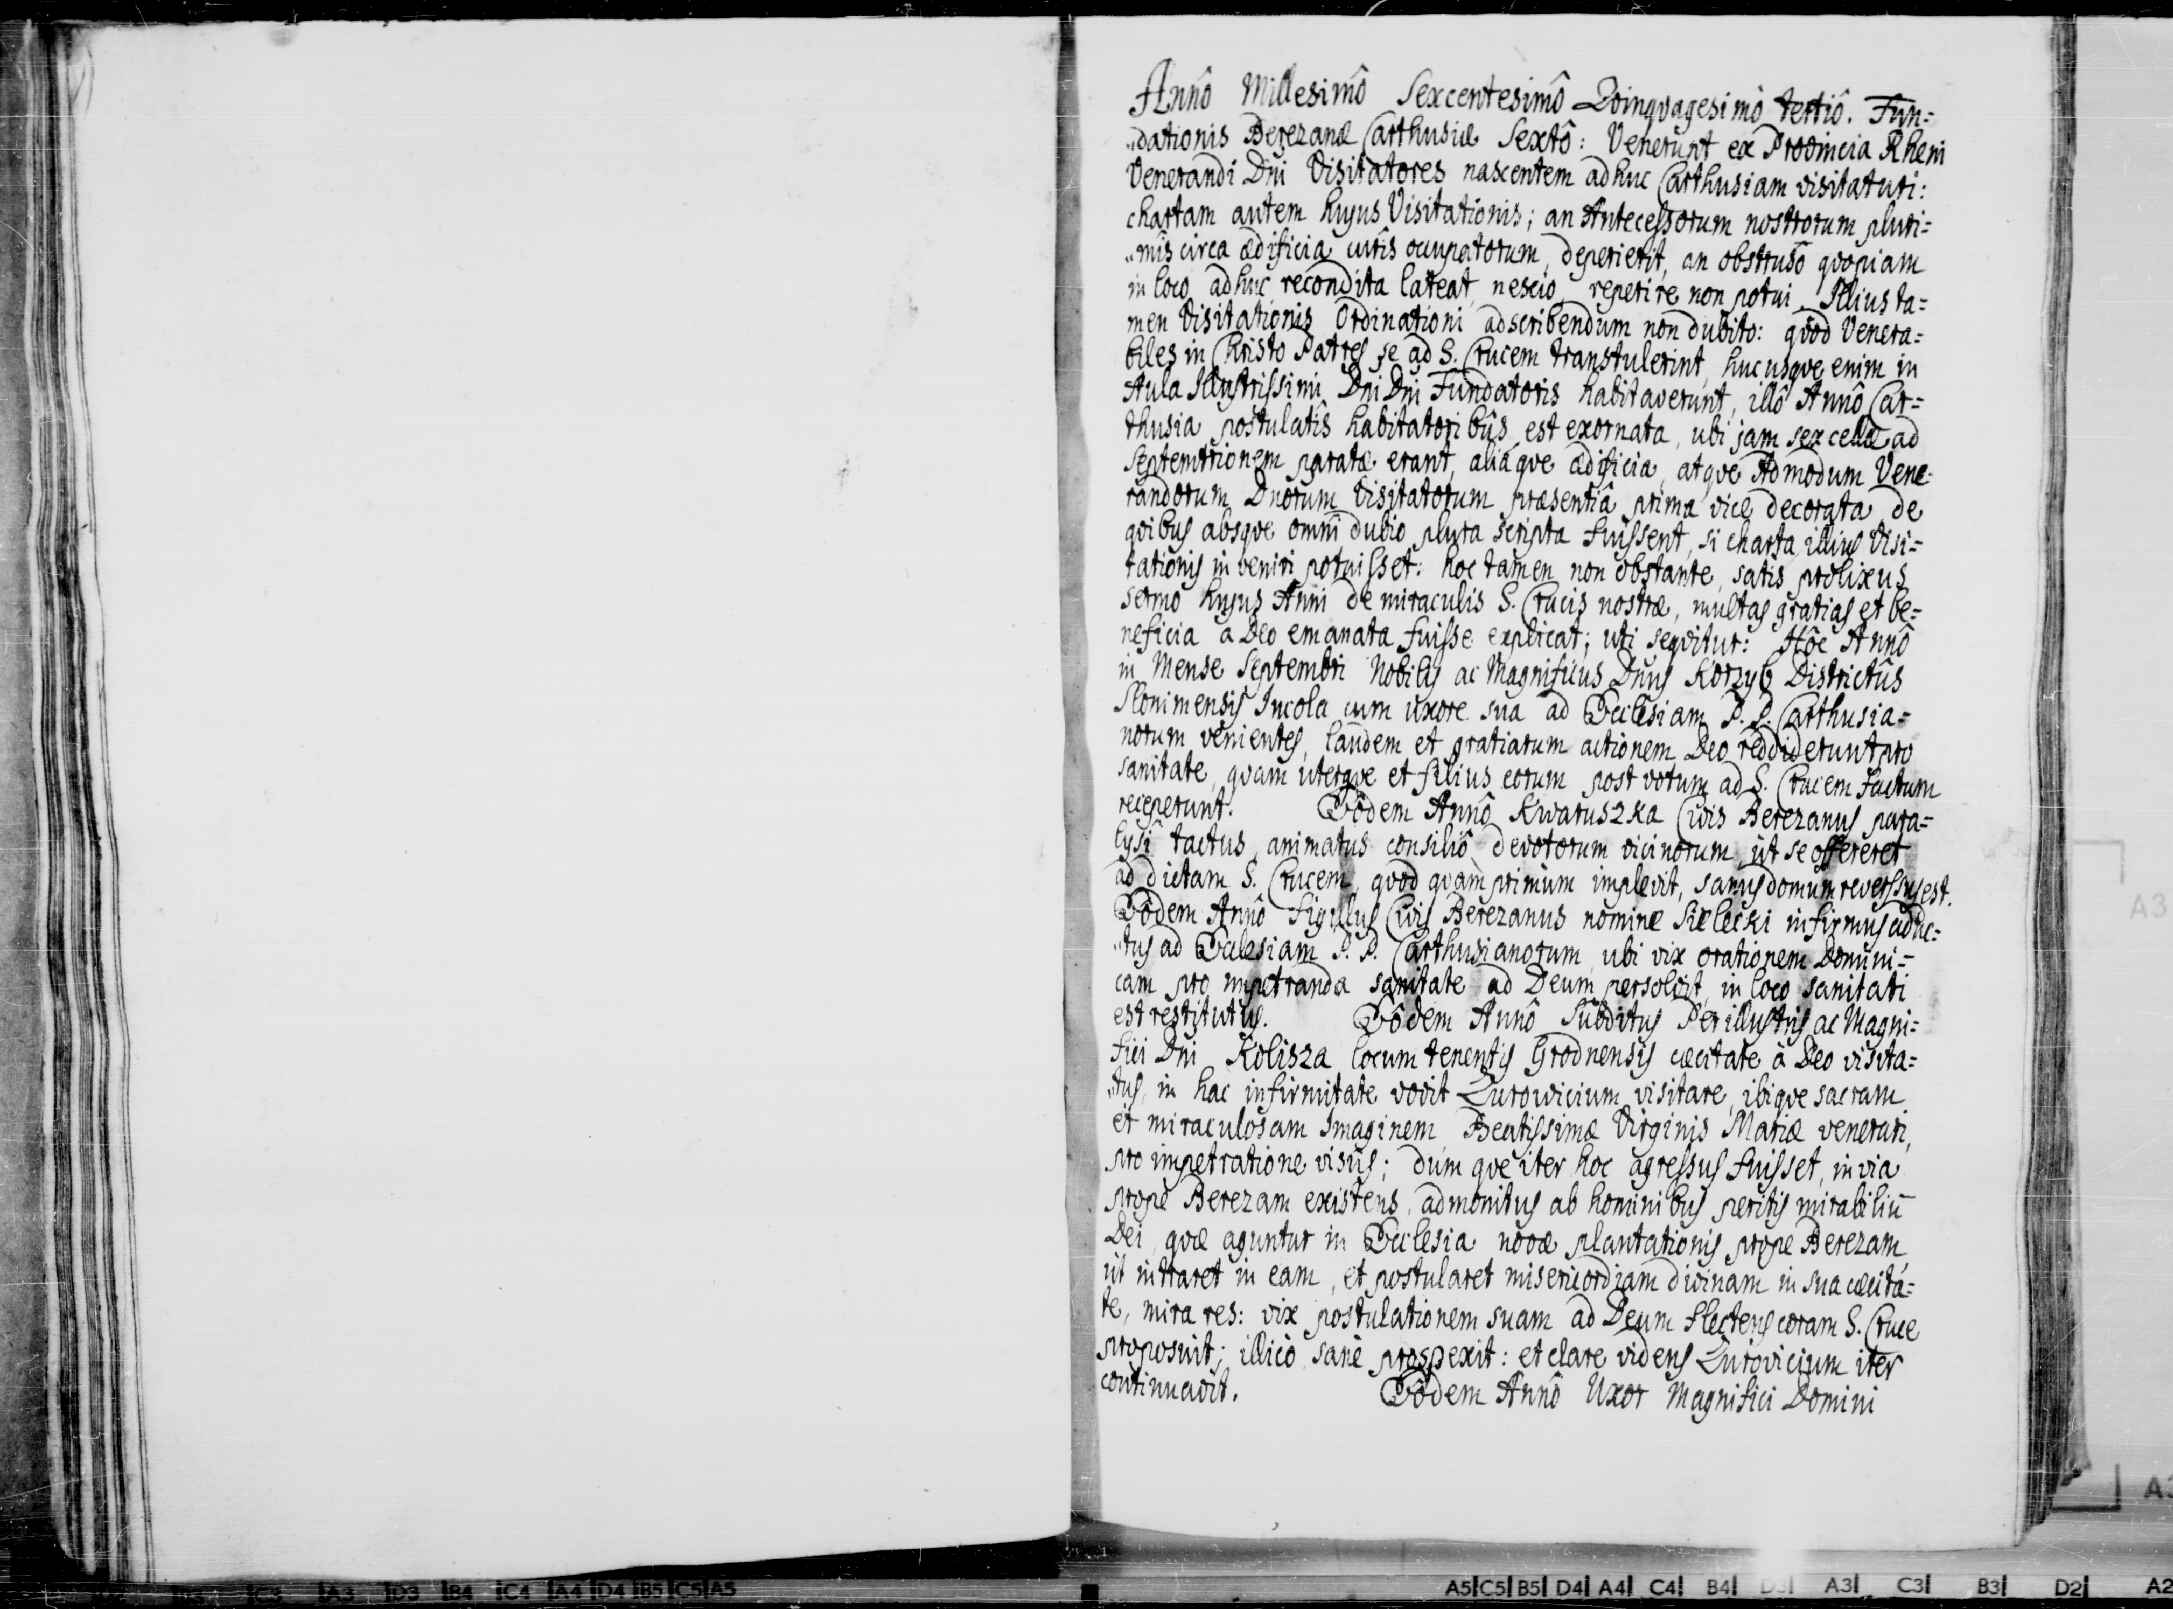 Annô Millesimô Sexcentesimô Qvinqvagesimô tertiô. Fun=
„dationis Berezanæ Carthusiæ Sextô: Venerunt ex Provincia Rheni
Venerandi Dni Visitatores nascentem adhuc Carthusiam visitaturi:
chartam autem hujus Visitationis; an Antecessorum nostrorum pluri=
„mis circa ædificia curis occupatorum, deperierit, an obstrusô qvopiam
in loco adhuc recondita lateat, nescio, reperire non potui. Illius ta=
men Visitationis Ordinationi adscribendum non dubito: qvod Venera=
biles in Christo Patres se ad S. Crucem transtulerint, hucusqve enim in
Aula Illustrissimi Dni Dni Fundatoris habitaverunt, illô Annô Car=
thusia postulatis habitatoribûs est exornata, ubi jam sex cellæ ad
Septemtrionem paratæ erant, aliaqve ædificia, atqve Admodum Vene=
randorum Dnorum Visitatorum præsentiâ prima vice decorata, de
qvibus absqve omni dubio plura scripta fuissent, si charta illius Visi=
tationis inveniri potuisset: hoc tamen non obstante, satis prolixus
sermo hujus Anni de miraculis S. Crucis nostræ, multas gratias et be=
neficia a Deo emanata fuisse explicat; uti seqvitur: Hôc Annô
in Mense Septembri Nobilis ac Magnificus Dnus Korzyb Districtûs
Slonimensis Incola cum uxore sua ad Ecclesiam P. P. Carthusia=
norum venientes, laudem et gratiarum actionem Deo reddiderunt pro
sanitate, qvam uterqve et filius eorum post votum ad S. Crucem factum
receperunt. Eôdem Annô Kwaruszka Civis Berezanus para=
lysi tactus, animatus consiliô devotorum vicinorum, ut se offereret
ad dictam S. Crucem, qvod qvam primum implevit, sanus domum reversus est.
Eôdem Annô figulus Civis Berezanus nomine Sielecki infirmus adduc=
„tus ad Ecclesiam P. P. Carthusianorum, ubi vix orationem Domini=
cam pro impetranda sanitate ad Deum persolvit, in loco sanitati
est restitutus. Eôdem Annô Subditus Perillustris ac Magni=
fici Dni Kolisza locum tenentis Grodnensis cæcitate à Deo visita=
„tus, in hac infirmitate vovit Zurowicium visitare, ibiqve sacram
et miraculosam Imaginem Beatissimæ Virginis Mariæ venerari,
pro impetratione visûs; dumqve iter hoc agressus fuisset, in via
prope Berezam existens, admonitus ab hominibus peritis mirabiliū
Dei, qvæ aguntur in Ecclesia novæ plantationis prope Berezam,
ut intraret in eam, et postularet misericordiam divinam in sua cæcita=
te, mira res: vix postulationem suam ad Deum flectens coram S. Cruce
proposuit; illicò sanè prospexit: et clare videns Zurovicium iter
continuavit. Eôdem Annô Uxor Magnifici Domini
A5 C5 B5 D4 A4 C4 B4 D3 A3 C3 B3 D2 A2
C3 A3 D3 B4 C4 A4 D4 B5 C5 A5
A3